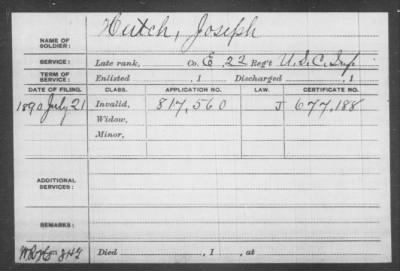 NAME OF SOLDIER: Hutch, Joseph
SERVICE: Late rank, Co. E, 22 Reg't U.S.C. Inf.
TERM OF SERVICE: Enlisted , 1 Discharged , 1
DATE OF FILING. CLASS. APPLICATION NO. LAW. CERTIFICATE NO.
1890 July 21 Invalid, 817,560 J 677,188
Widow,
Minor,
ADDITIONAL SERVICES:
REMARKS:
Died , 1 , at